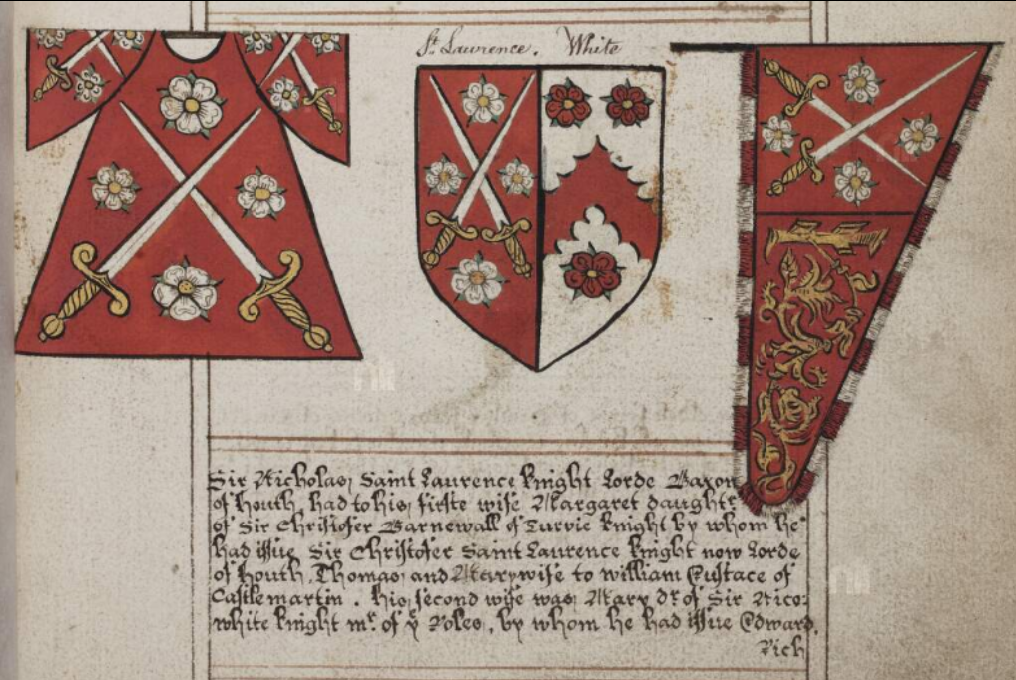 St. Lawrence. White
Sir Nicholas Saint Laurence knight Lorde Baron
of Houth had to his firste wife Margaret daughtr
of Sir Christofer Barnewall of Turvie knight by whom he
had issue Sir Christofer Saint Laurence knight now Lorde
of Houth, Thomas and Mary wife to william Eustace of
Castlemartin. his second wife was Mary dr. of Sir Nico:
white knight mr. of ye Roles, by whom he had issue Edward,
Rich